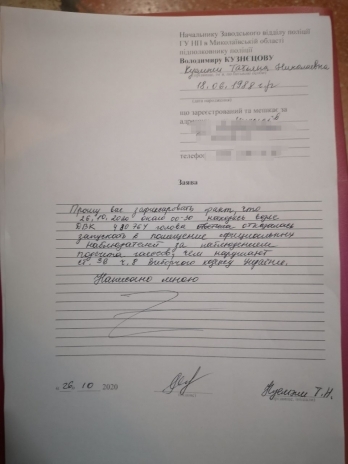 Начальнику Заводського відділу поліції
ГУ НП в Миколаївській області
підполковнику поліції
Володимиру КУЗНЄЦОВУ
Татьяна Николаевна
18.06.1988 г/р
що зареєстрований та мешкає за
телефон
Заява
Прошу вас зарегистрировать факт, что
26.10.2020 около 00-30 находясь возле
ДВК 480764 голова отказалась
запускать в помещение официальных
наблюдателей за наблюдением
подсчета голосов, чем нарушают
ст. 38 ч. 8 Виборчого кодексу України.
Написано мною
« 26. 10 2020
Т.Н.